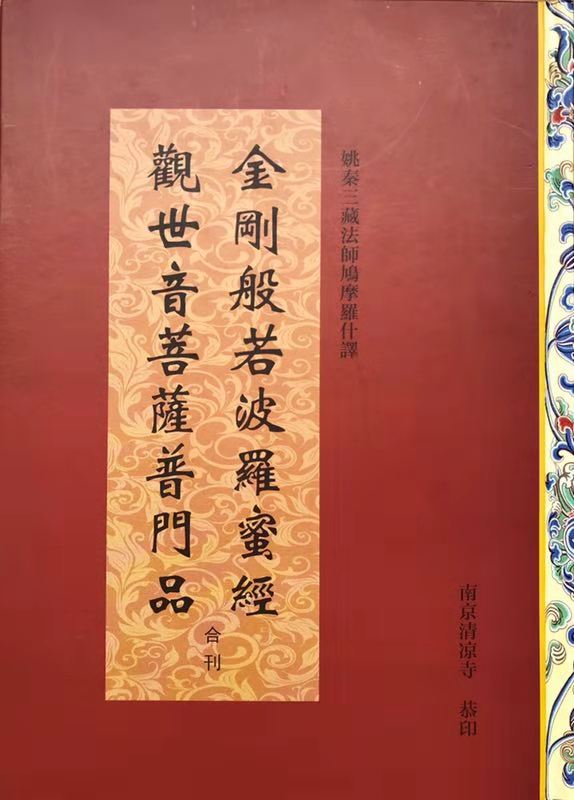 姚秦三藏法師鳩摩羅什譯
金剛般若波羅蜜經
觀世音菩薩普門品
合刊
南京清凉寺 恭印